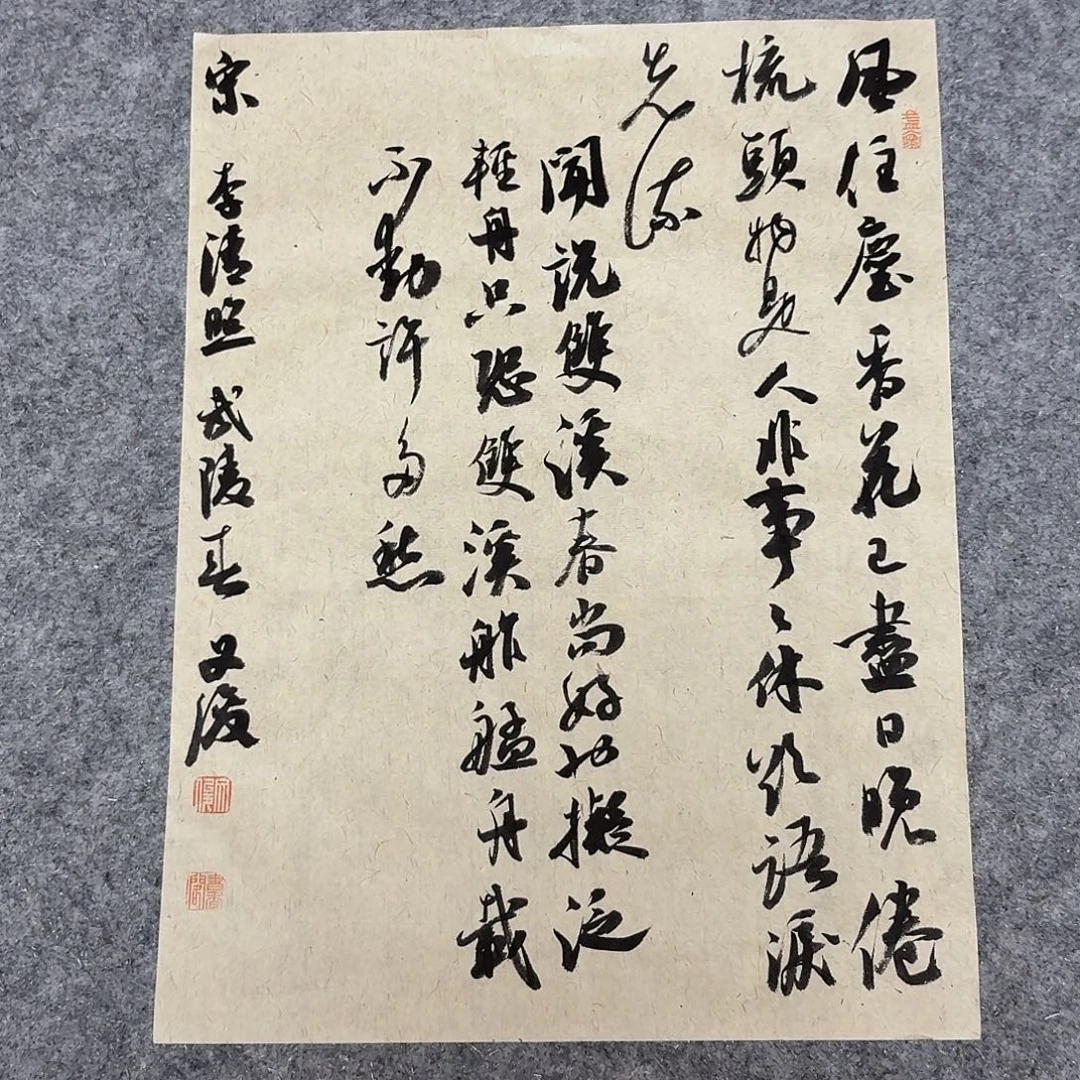 風住塵香花已盡日晚倦
梳頭物是人非事々休欲語淚
先流
聞說雙溪春尚好也擬泛
輕舟只恐雙溪舴艋舟載
不動許多愁
宋 李清照 武陵春